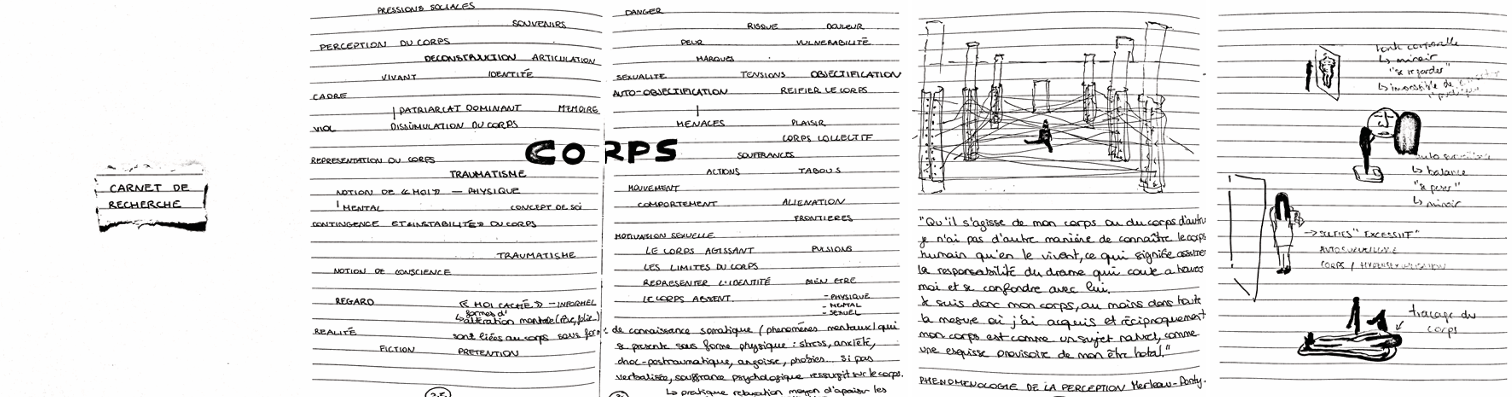 CARNET DE
RECHERCHE
PRESSIONS SOCIALES
SOUVENIRS
PERCEPTION DU CORPS
DECONSTRUCTION ARTICULATION
VIVANT IDENTITÉ
CADRE
PATRIARCAT DOMINANT MEMOIRE
VIOL DISSIMULATION DU CORPS
CORPS
REPRESENTATION DU CORPS
TRAUMATISME
NOTION DE "MOI" — PHYSIQUE
MENTAL CONCEPT DE SOI
CONTINGENCE DU CORPS
TRAUMATISME
NOTION DE CONSCIENCE
REGARD "MOI CACHÉ" - INFORMEL
formes d'
altération mentale
REALITÉ sont liées au corps sans
FICTION PRETENTION
DANGER
RISQUE DOULEUR
PEUR VULNERABILITÉ
MARQUES
SEXUALITE TENSIONS OBJECTIFICATION
AUTO-OBJECTIFICATION REIFIER LE CORPS
MENACES PLAISIR
CORPS COLLECTIF
SOUFFRANCES
ACTIONS TABOUS
MOUVEMENT
COMPORTEMENT ALIENATION
FRONTIERES
MOTIVATION SEXUELLE
LE CORPS AGISSANT PULSIONS
LES LIMITES DU CORPS
REPRESENTER L'IDENTITÉ BIEN ETRE
LE CORPS ABSENT - PHYSIQUE
- MENTAL
- SEXUEL
de connaissance somatique (phenomènes mentaux) qui
se presente sous forme physique : stress, anxiété,
choc-postraumatique, angoisse, phobies... Si pas
verbalisée, souffrance psychologique ressurgit sur le corps.
↳ pratique relaxation moyen d'apaiser les
"Qu'il s'agisse de mon corps ou du corps d'autrui
je n'ai pas d'autre manière de connaître le corps
humain qu'en le vivant, ce qui signifie
la responsabilité du drame qui
moi et se confondre avec lui.
Je suis donc mon corps, au moins dans toute
la mesure où j'ai acquis et réciproquement
mon corps est comme un sujet naturel, comme
une esquisse provisoire de mon être total."
PHENOMENOLOGIE DE LA PERCEPTION Merleau-Ponty.
↳ miroir
"se regarder"
↳ impossible de
↳ balance
"se peser"
↳ miroir
→ SELFIES "EXCESSIF"
AUTOSURVEILLANCE
traçage du
corps